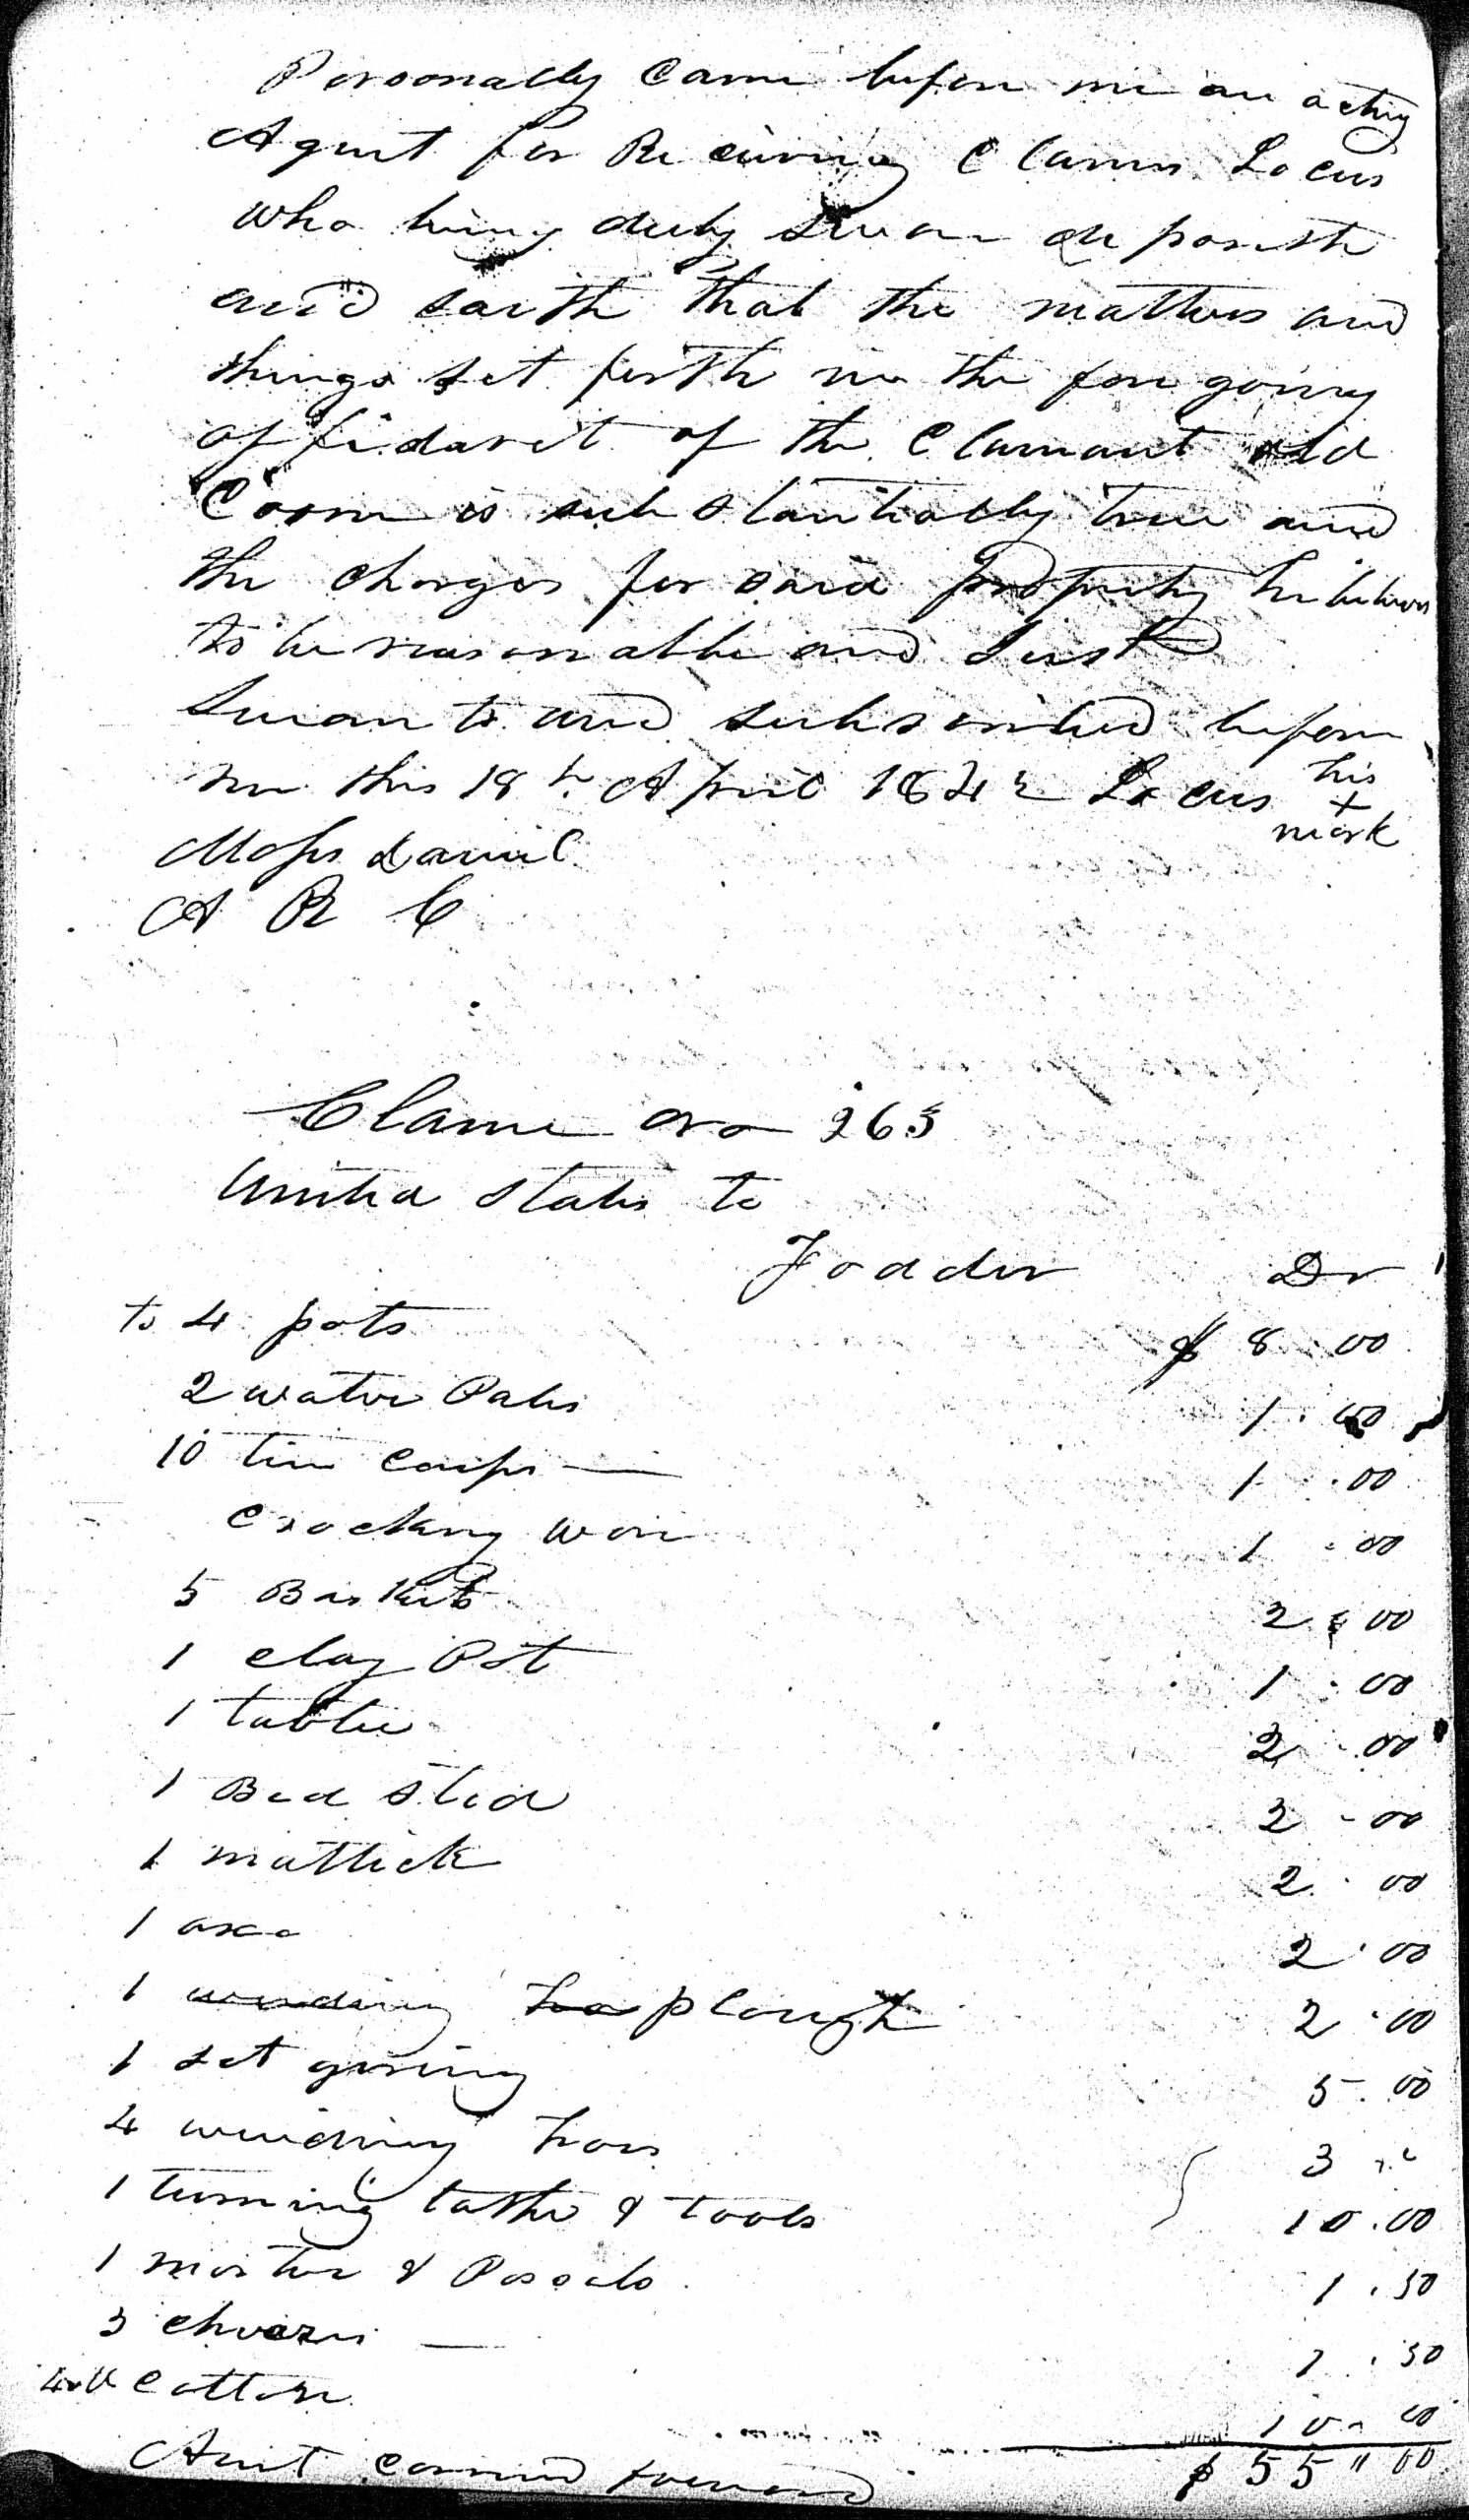 Personally Came before me an acting
Agent for Receiving Clames Locus
who being duly sworn deposeth
and saith that the matters and
things set forth in the fore going
affidavit of the Clamant old
Coon is substantially true and
the charges for said property he believes
to be reasonable and Just
Sworn to and subscribed before
me this 18th April 1842 Locus his
x
mark
Moses Daniel
A R C
Clame No 263
United States to
Fodder Dr
to 4 pots $ 8.00
2 water Pales 1.00
10 tin Cups 1.00
Crockery Ware 1.00
5 Baskets 2.00
1 clay Pot 1.00
1 table 2.00
1 Bed Sted 2.00
1 mattick 2.00
1 axe 2.00
1 weeding ho plough 2.00
1 set gering 5.00
4 weeding hoes 3
1 turning lathe & tools 10.00
1 morter & 1.50
3 chears 1.50
Cotton 10.00
Amt carried forward $ 55"00